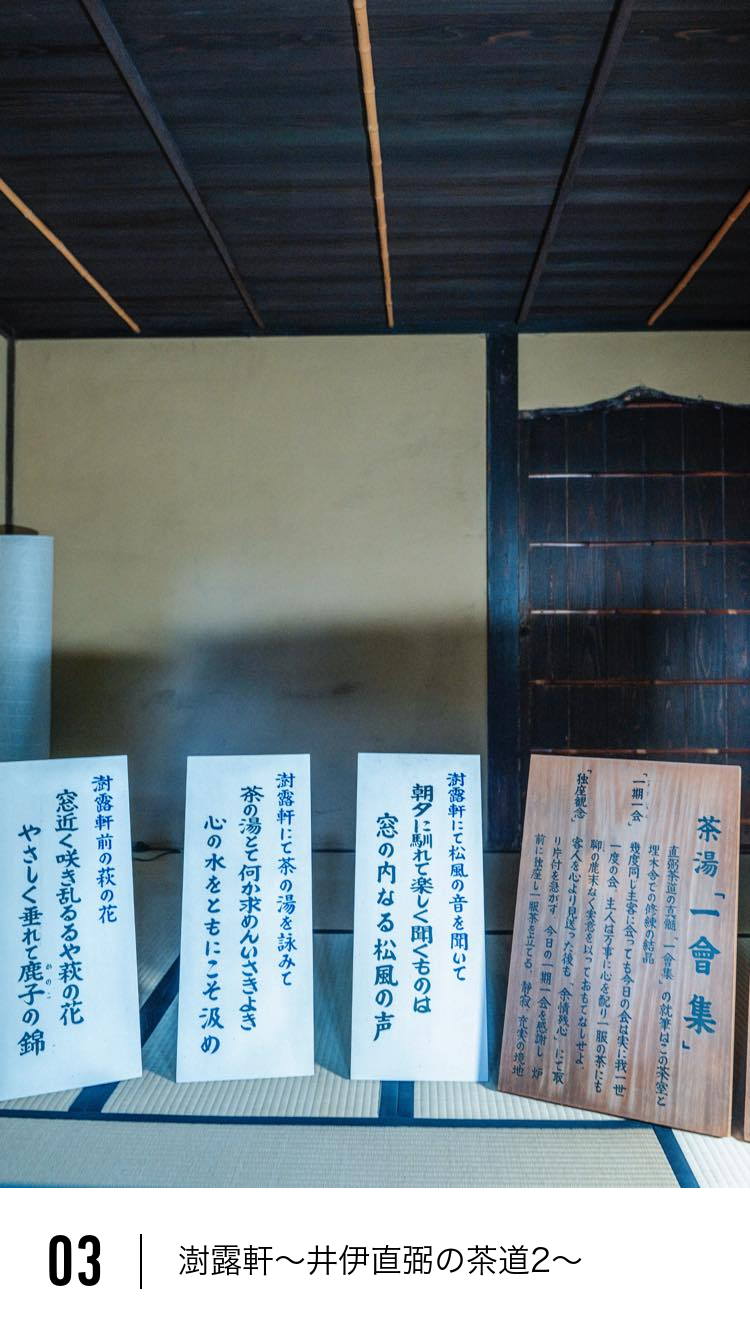 茶湯「一會集」
直弼茶道の真髄「一會集」の執筆はこの茶室と
埋木舎での修練の結晶
「一期一会」
幾度同じ主客に会っても今日の会は実に我一世
一度の会、主人は万事に心を配り一服の茶にも
聊の麁末なく実意を以っておもてなしせよ
「独座観念」
客人を心より見送った後も「余情残心」にて取
り片付を急がす、今日の一期一会を感謝し、炉
前に独座し一服茶を立てる、静寂、充実の境地
澍露軒にて松風の音を聞いて
朝夕に馴れて楽しく聞くものは
窓の内なる松風の声
澍露軒にて茶の湯を詠みて
茶の湯とて何か求めんいさきよき
心の水をともにこそ汲め
澍露軒前の萩の花
窓近く咲き乱るるや萩の花
やさしく垂れて鹿子の錦
かのこ
03
澍露軒〜井伊直弼の茶道2〜